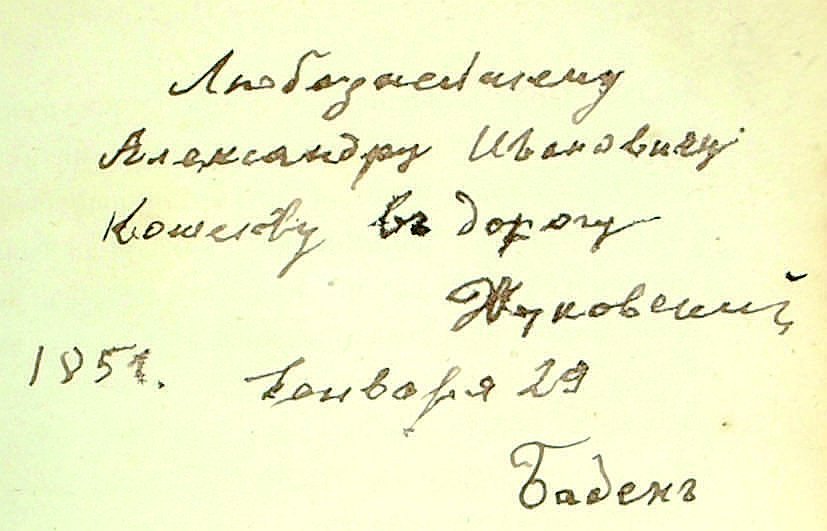 Любезнейшему
Александру Ивановичу
Кошелеву въ дорогу
Жуковский
1851. Января 29
Баденъ